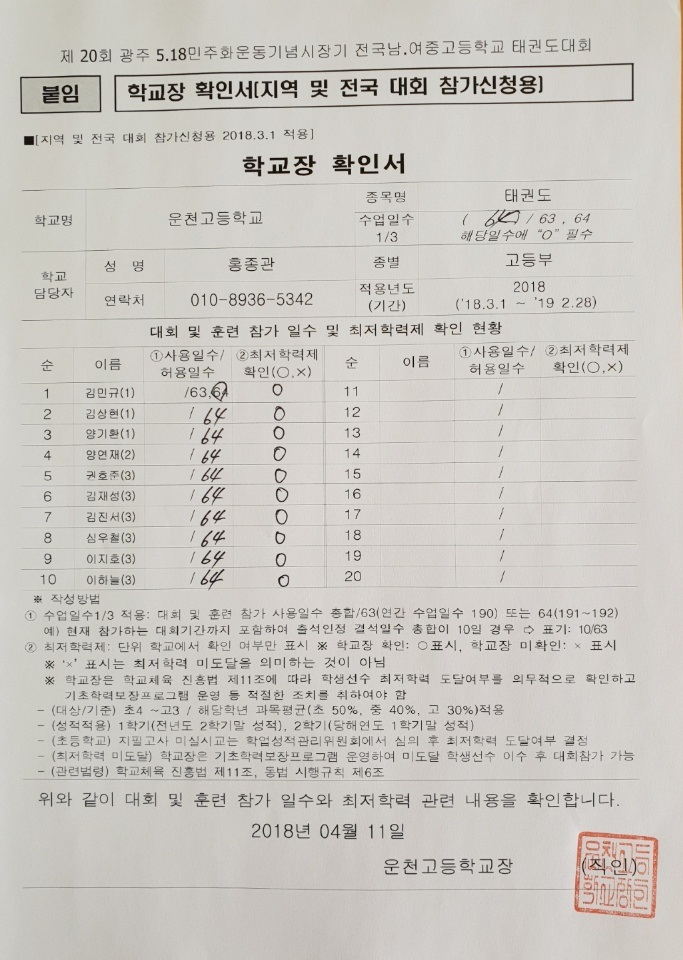 제 20회 광주 5.18민주화운동기념시장기 전국남.여중고등학교 태권도대회
붙임 학교장 확인서[지역 및 전국 대회 참가신청용]
■[지역 및 전국 대회 참가신청용 2018.3.1 적용]
학교장 확인서
학교명 운천고등학교 종목명 태권도
수업일수 1/3 ( 64 ) / 63 , 64
해당일수에 "O" 필수
학교 담당자 성 명 홍종관 종별 고등부
연락처 010-8936-5342 적용년도 (기간) 2018
('18.3.1 ~ '19 2.28)
대회 및 훈련 참가 일수 및 최저학력제 확인 현황
순 이름 ①사용일수/허용일수 ②최저학력제 확인(○,×) 순 이름 ①사용일수/허용일수 ②최저학력제 확인(○,×)
1 김민규(1) /63,64 O 11 /
2 김상현(1) / 64 O 12 /
3 양기환(1) / 64 O 13 /
4 양연재(2) / 64 O 14 /
5 권호준(3) / 64 O 15 /
6 김재성(3) / 64 O 16 /
7 김진서(3) / 64 O 17 /
8 심우철(3) / 64 O 18 /
9 이지호(3) / 64 O 19 /
10 이하늘(3) / 64 O 20 /
※ 작성방법
① 수업일수1/3 적용: 대회 및 훈련 참가 사용일수 총합/63(연간 수업일수 190) 또는 64(191~192)
예) 현재 참가하는 대회기간까지 포함하여 출석인정 결석일수 총합이 10일 경우 ⇨ 표기: 10/63
② 최저학력제: 단위 학교에서 확인 여부만 표시 ※ 학교장 확인: ○표시, 학교장 미확인: × 표시
※ '×' 표시는 최저학력 미도달을 의미하는 것이 아님
※ 학교장은 학교체육 진흥법 제11조에 따라 학생선수 최저학력 도달여부를 의무적으로 확인하고
기초학력보장프로그램 운영 등 적절한 조치를 취하여야 함
- (대상/기준) 초4 ~고3 / 해당학년 과목평균(초 50%, 중 40%, 고 30%)적용
- (성적적용) 1학기(전년도 2학기말 성적), 2학기(당해연도 1학기말 성적)
- (초등학교) 지필고사 미실시교는 학업성적관리위원회에서 심의 후 최저학력 도달여부 결정
- (최저학력 미도달) 학교장은 기초학력보장프로그램 운영하여 미도달 학생선수 이수 후 대회참가 가능
- (관련법령) 학교체육 진흥법 제11조, 동법 시행규칙 제6조
위와 같이 대회 및 훈련 참가 일수와 최저학력 관련 내용을 확인합니다.
2018년 04월 11일
운천고등학교장 (직인)